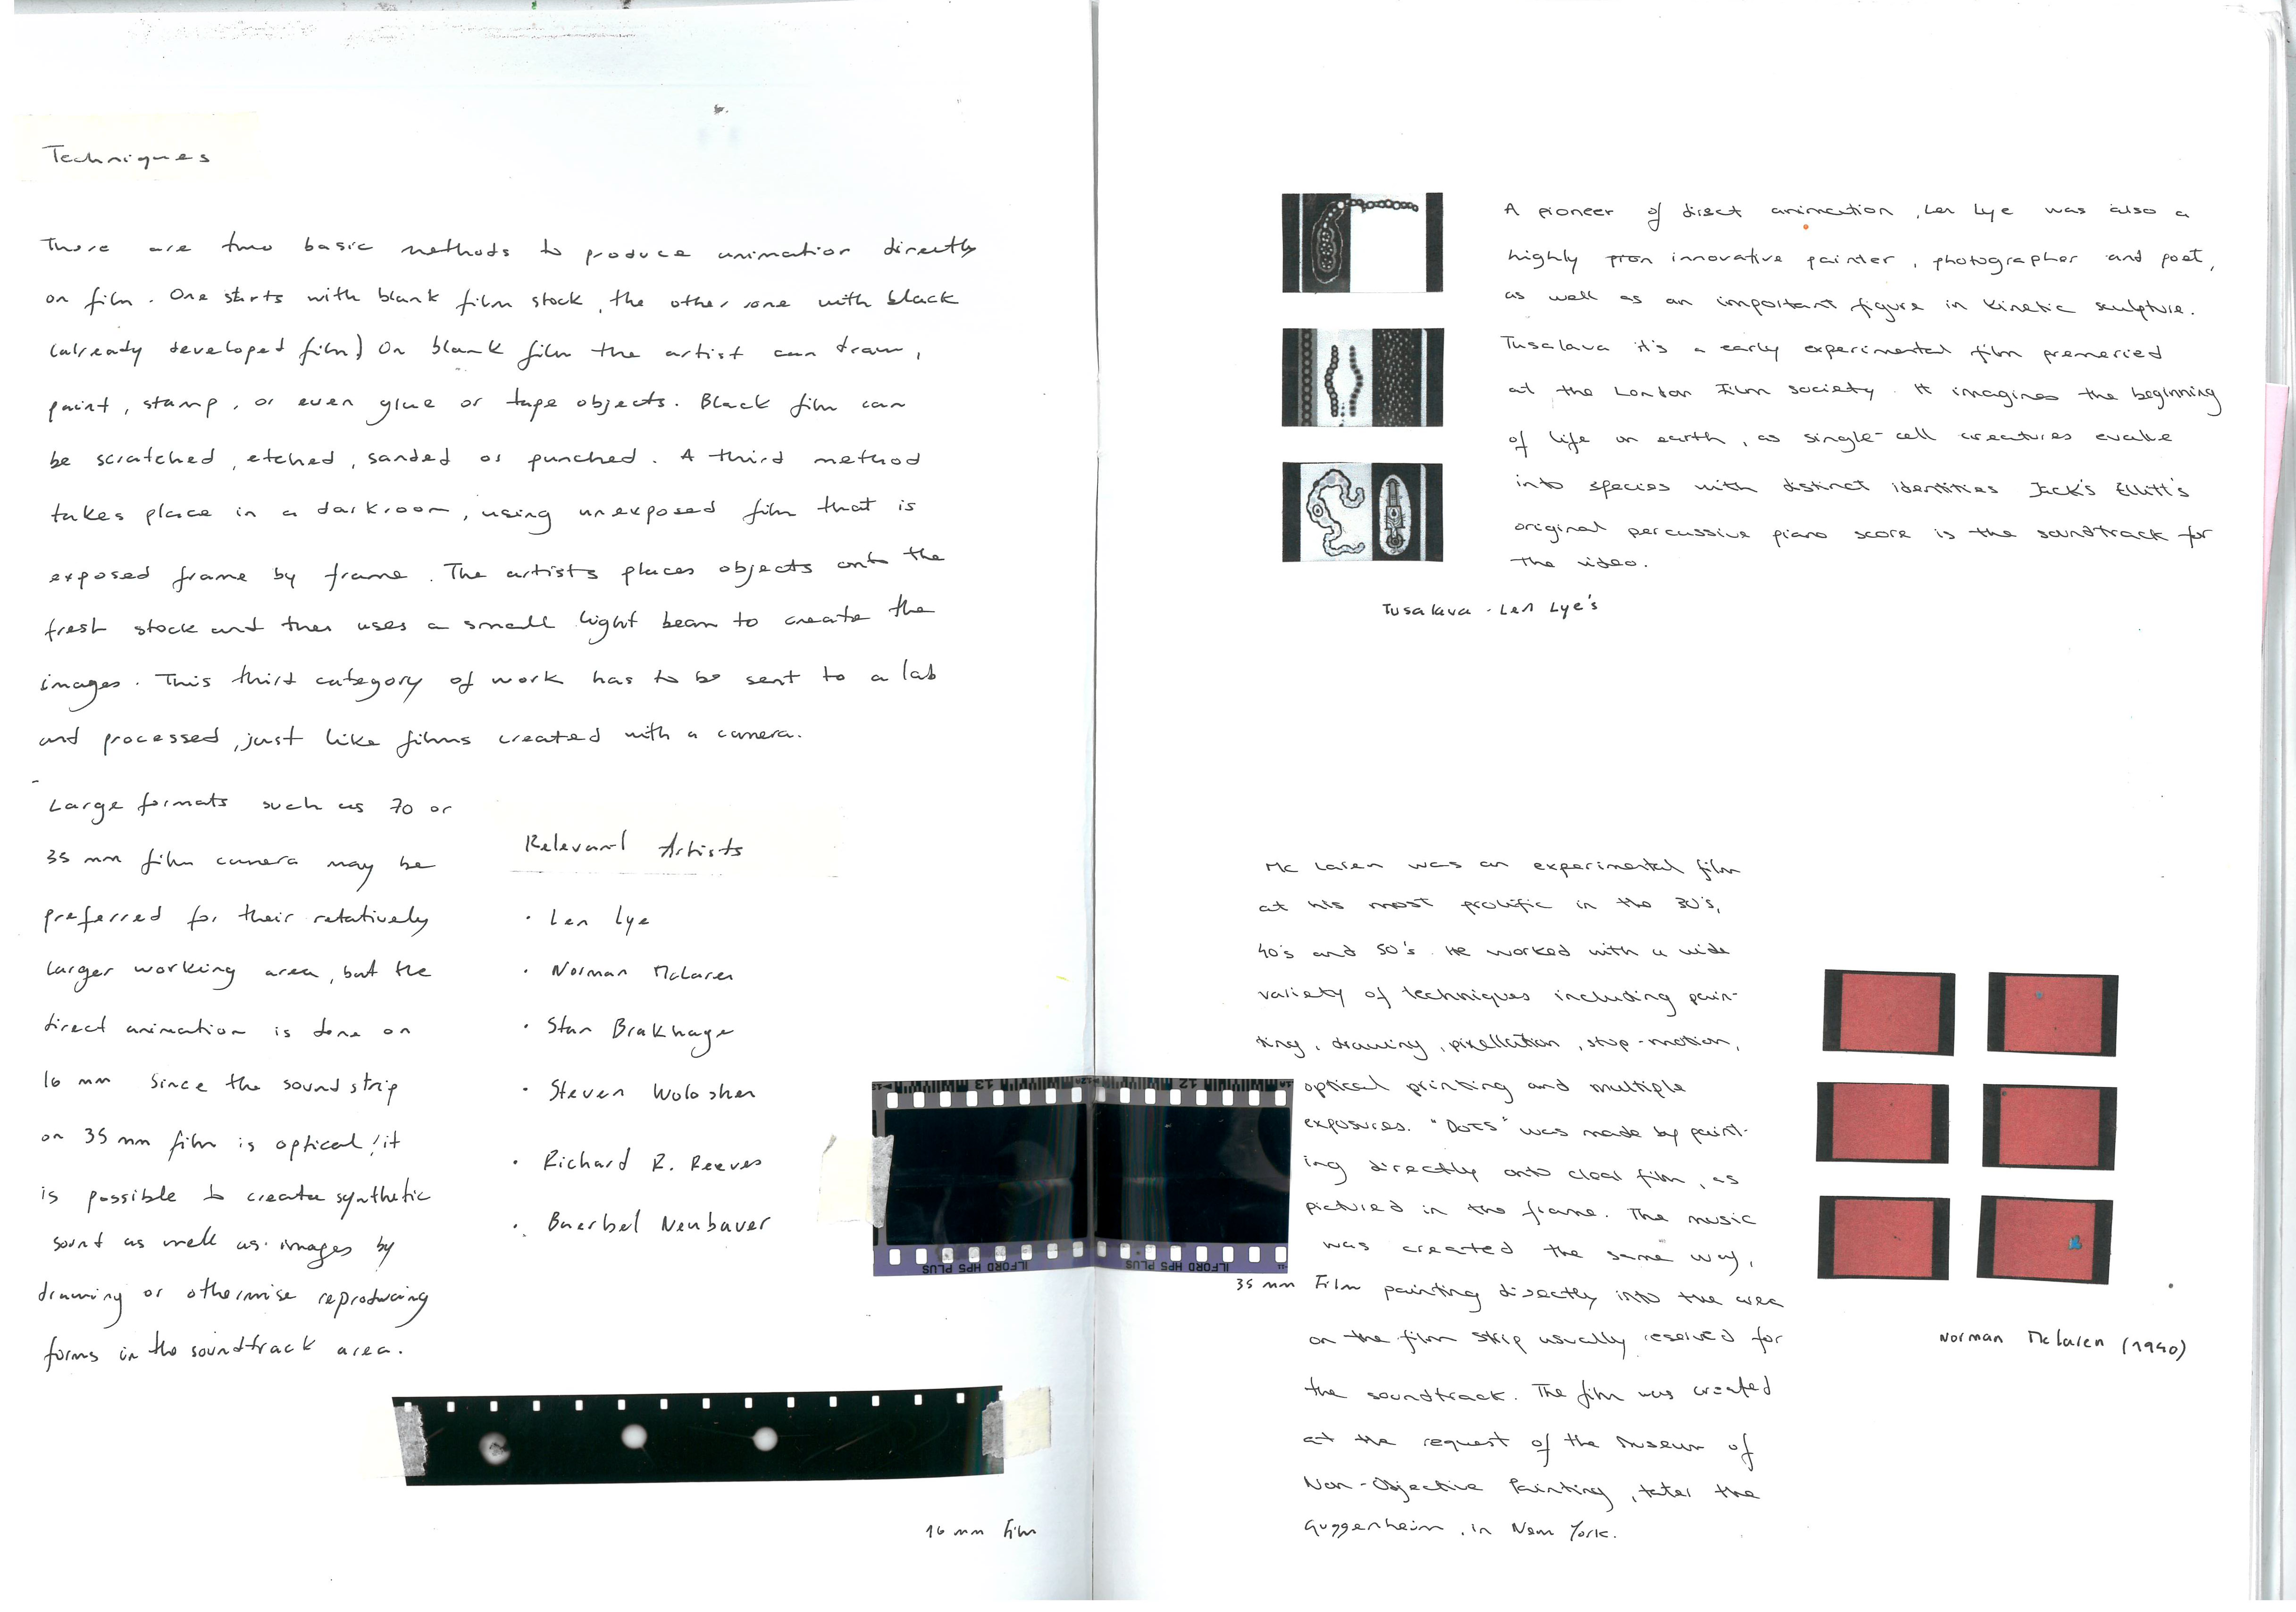 Techniques
There are two basic methods to produce animation directly
on film. One starts with blank film stock, the other one with black
(already developed film) On blank film the artist can draw,
paint, stamp, or even glue or tape objects. Black film can
be scratched, etched, sanded or punched. A third method
takes place in a darkroom, using unexposed film that is
exposed frame by frame. The artists places objects onto the
fresh stock and then uses a small light beam to create the
images. This third category of work has to be sent to a lab
and processed, just like films created with a camera.
Large formats such as 70 or
35 mm film camera may be
preferred for their relatively
larger working area, but the
direct animation is done on
16 mm Since the sound strip
on 35 mm film is optical, it
is possible to create synthetic
sound as well as images by
drawing or otherwise reproducing
forms in the soundtrack area.
Relevant Artists
· Len Lye
· Norman McLaren
· Stan Brakhage
· Steven Woloshen
· Richard R. Reeves
· Baerbel Neubauer
13
12
ILFORD HP5 PLUS
ILFORD HP5 PLUS
35 mm Film
16 mm Film
A pioneer of direct animation, Len Lye was also a
highly innovative painter, photographer and poet,
as well as an important figure in kinetic sculpture.
Tusalava it's a early experimental film premeried
at the London Film society. It imagines the beginning
of life on earth, as single-cell creatures evolve
into species with distinct identities Jack's Ellitt's
original percussive piano score is the soundtrack for
the video.
Tusalava - Len Lye's
Mc Laren was an experimental film
at his most prolific in the 30's,
40's and 50's. He worked with a wide
variety of techniques including pain-
ting, drawing, pixellation, stop-motion,
optical printing and multiple
exposures. "Dots" was made by paint-
ing directly onto clear film, as
pictured in the frame. The music
was created the same way,
painting directly into the area
on the film strip usually reserved for
the soundtrack. The film was created
at the request of the Museum of
Non-Objective Painting, later the
Guggenheim, in New York.
Norman McLaren (1940)